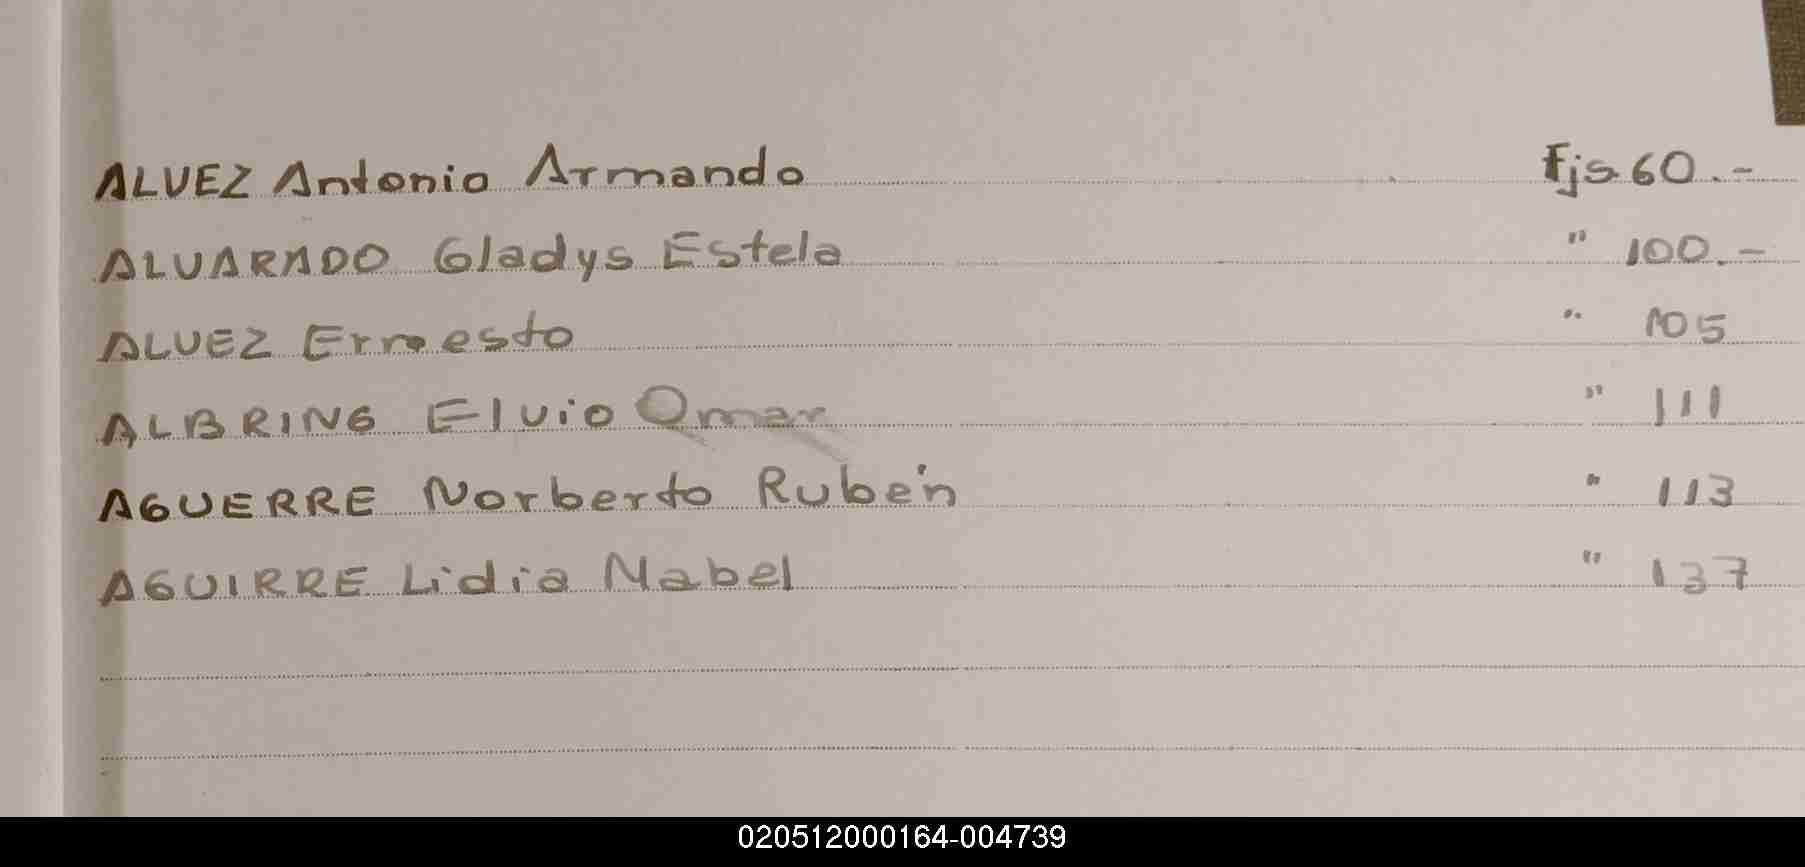 ALVEZ Antonio Armando fjs 60.-
ALVARADO Gladys Estela " 100.-
ALVEZ Ernesto " 105
ALBRING Elvio Omar " 111
AGUERRE Norberto Rubén " 113
AGUIRRE Lidia Mabel " 137
020512000164-004739